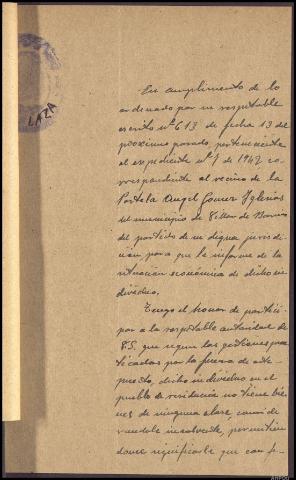 LAZA
En cumplimento de lo
ordenado por su respetable
escrito nº 613 de fecha 13 del
proximo pasado, perteneciente
al expediente nº 1 de 1942 co-
rrespondiente al vecino de la
Portela Angel Gomez Yglesias
del municipio de Villar de Barrio
del partido de su digna jurisdi-
ción, para que le informe de la
situacion económica de dicho in-
dividuo.
Tengo el honor de partici-
par a la respetable autoridad de
V.S. que segun las gestiones prac-
ticadas por la fuerza de este
puesto, dicho individuo en el
pueblo de residencia no tiene bie-
nes de ninguna clase, consi de-
randole insolvente, permitien
dome significarle que con f-